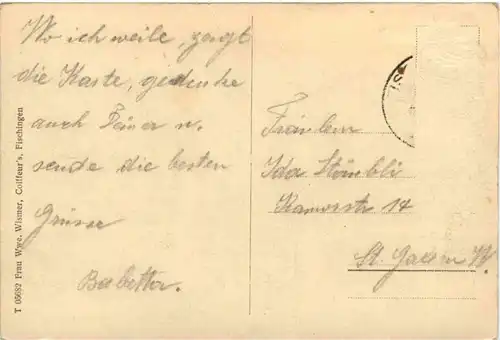 Wo ich weile, zeigt
die Karte, gedenke
auch Deiner u.
sende die besten
Grüsse
Babette.
Fräulein
Ida Stäubli
Kamorstr 14
St. Gallen W.
T 05682 Frau Wwe. Wismer, Coiffeur's, Fischingen